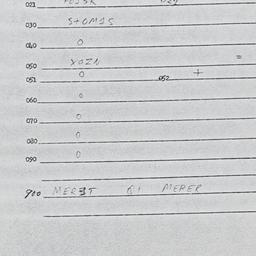 021
030 STOMIS
040 0
=
050 XOZN
051 0 052 +
060 0
070 0
080 0
090 0
900 MEREST MERER